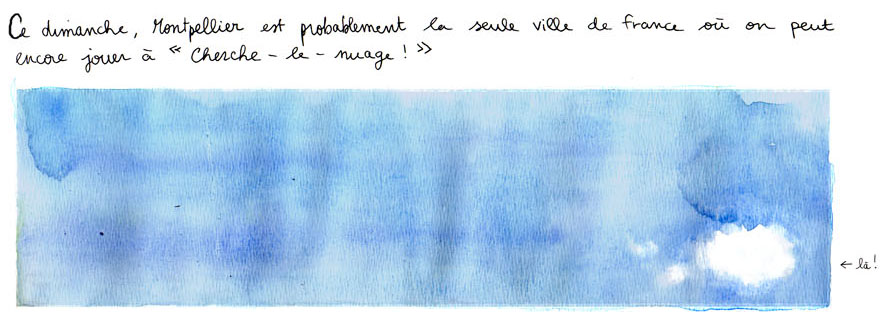 Ce dimanche, Montpellier est probablement la seule ville de france où on peut
encore jouer à « Cherche - le - nuage ! »
← là !